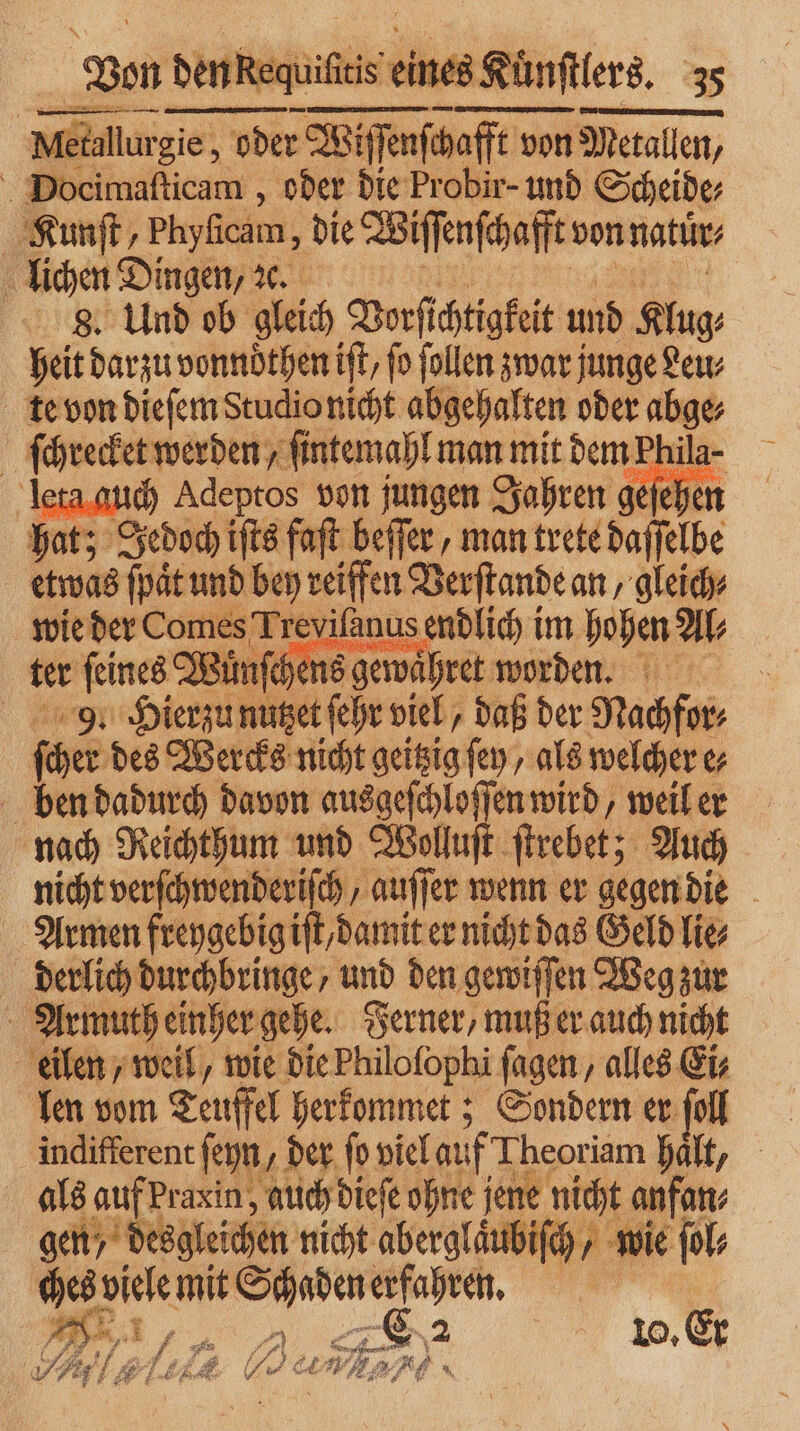 Von den Requiſitis eines Kuͤnſtlers. 35
Metallurgie, oder Wiſſenſchafft von Metallen,
Docimaſticam, oder die Probir- und Scheide-
Kunſt, Phyſicam, die Wiſſenſchafft von natuͤr-
lichen Dingen, ꝛc.
8. Und ob gleich Vorſichtigkeit und Klug-
heit darzu vonnoͤthen iſt, ſo ſollen zwar junge Leu-
te von dieſem Studio nicht abgehalten oder abge-
ſchrecket werden, ſintemahl man mit dem Phila-
leta auch Adeptos von jungen Jahren geſehen
hat; Jedoch iſts faſt beſſer, man trete daſſelbe
etwas ſpaͤt und bey reiffen Verſtande an, gleich-
wie der Comes Treviſanus endlich im hohen Al-
ter ſeines Wuͤnſchens gewaͤhret worden.
9. Hierzu nutzet ſehr viel, daß der Nachfor-
ſcher des Wercks nicht geitzig ſey, als welcher e-
ben dadurch davon ausgeſchloſſen wird, weil er
nach Reichthum und Wolluſt ſtrebet; Auch
nicht verſchwenderiſch, auſſer wenn er gegen die
Armen freygebig iſt, damit er nicht das Geld lie-
derlich durchbringe, und den gewiſſen Weg zur
Armuth einher gehe. Ferner, muß er auch nicht
eilen, weil, wie die Philoſophi ſagen, alles Ei-
len vom Teuffel herkommet; Sondern er ſoll
indifferent ſeyn, der ſo viel auf Theoriam haͤlt,
als auf Praxin, auch dieſe ohne jene nicht anfan-
gen, desgleichen nicht aberglaͤubiſch, wie ſol-
ches viele mit Schaden erfahren.
C 2 10. Er